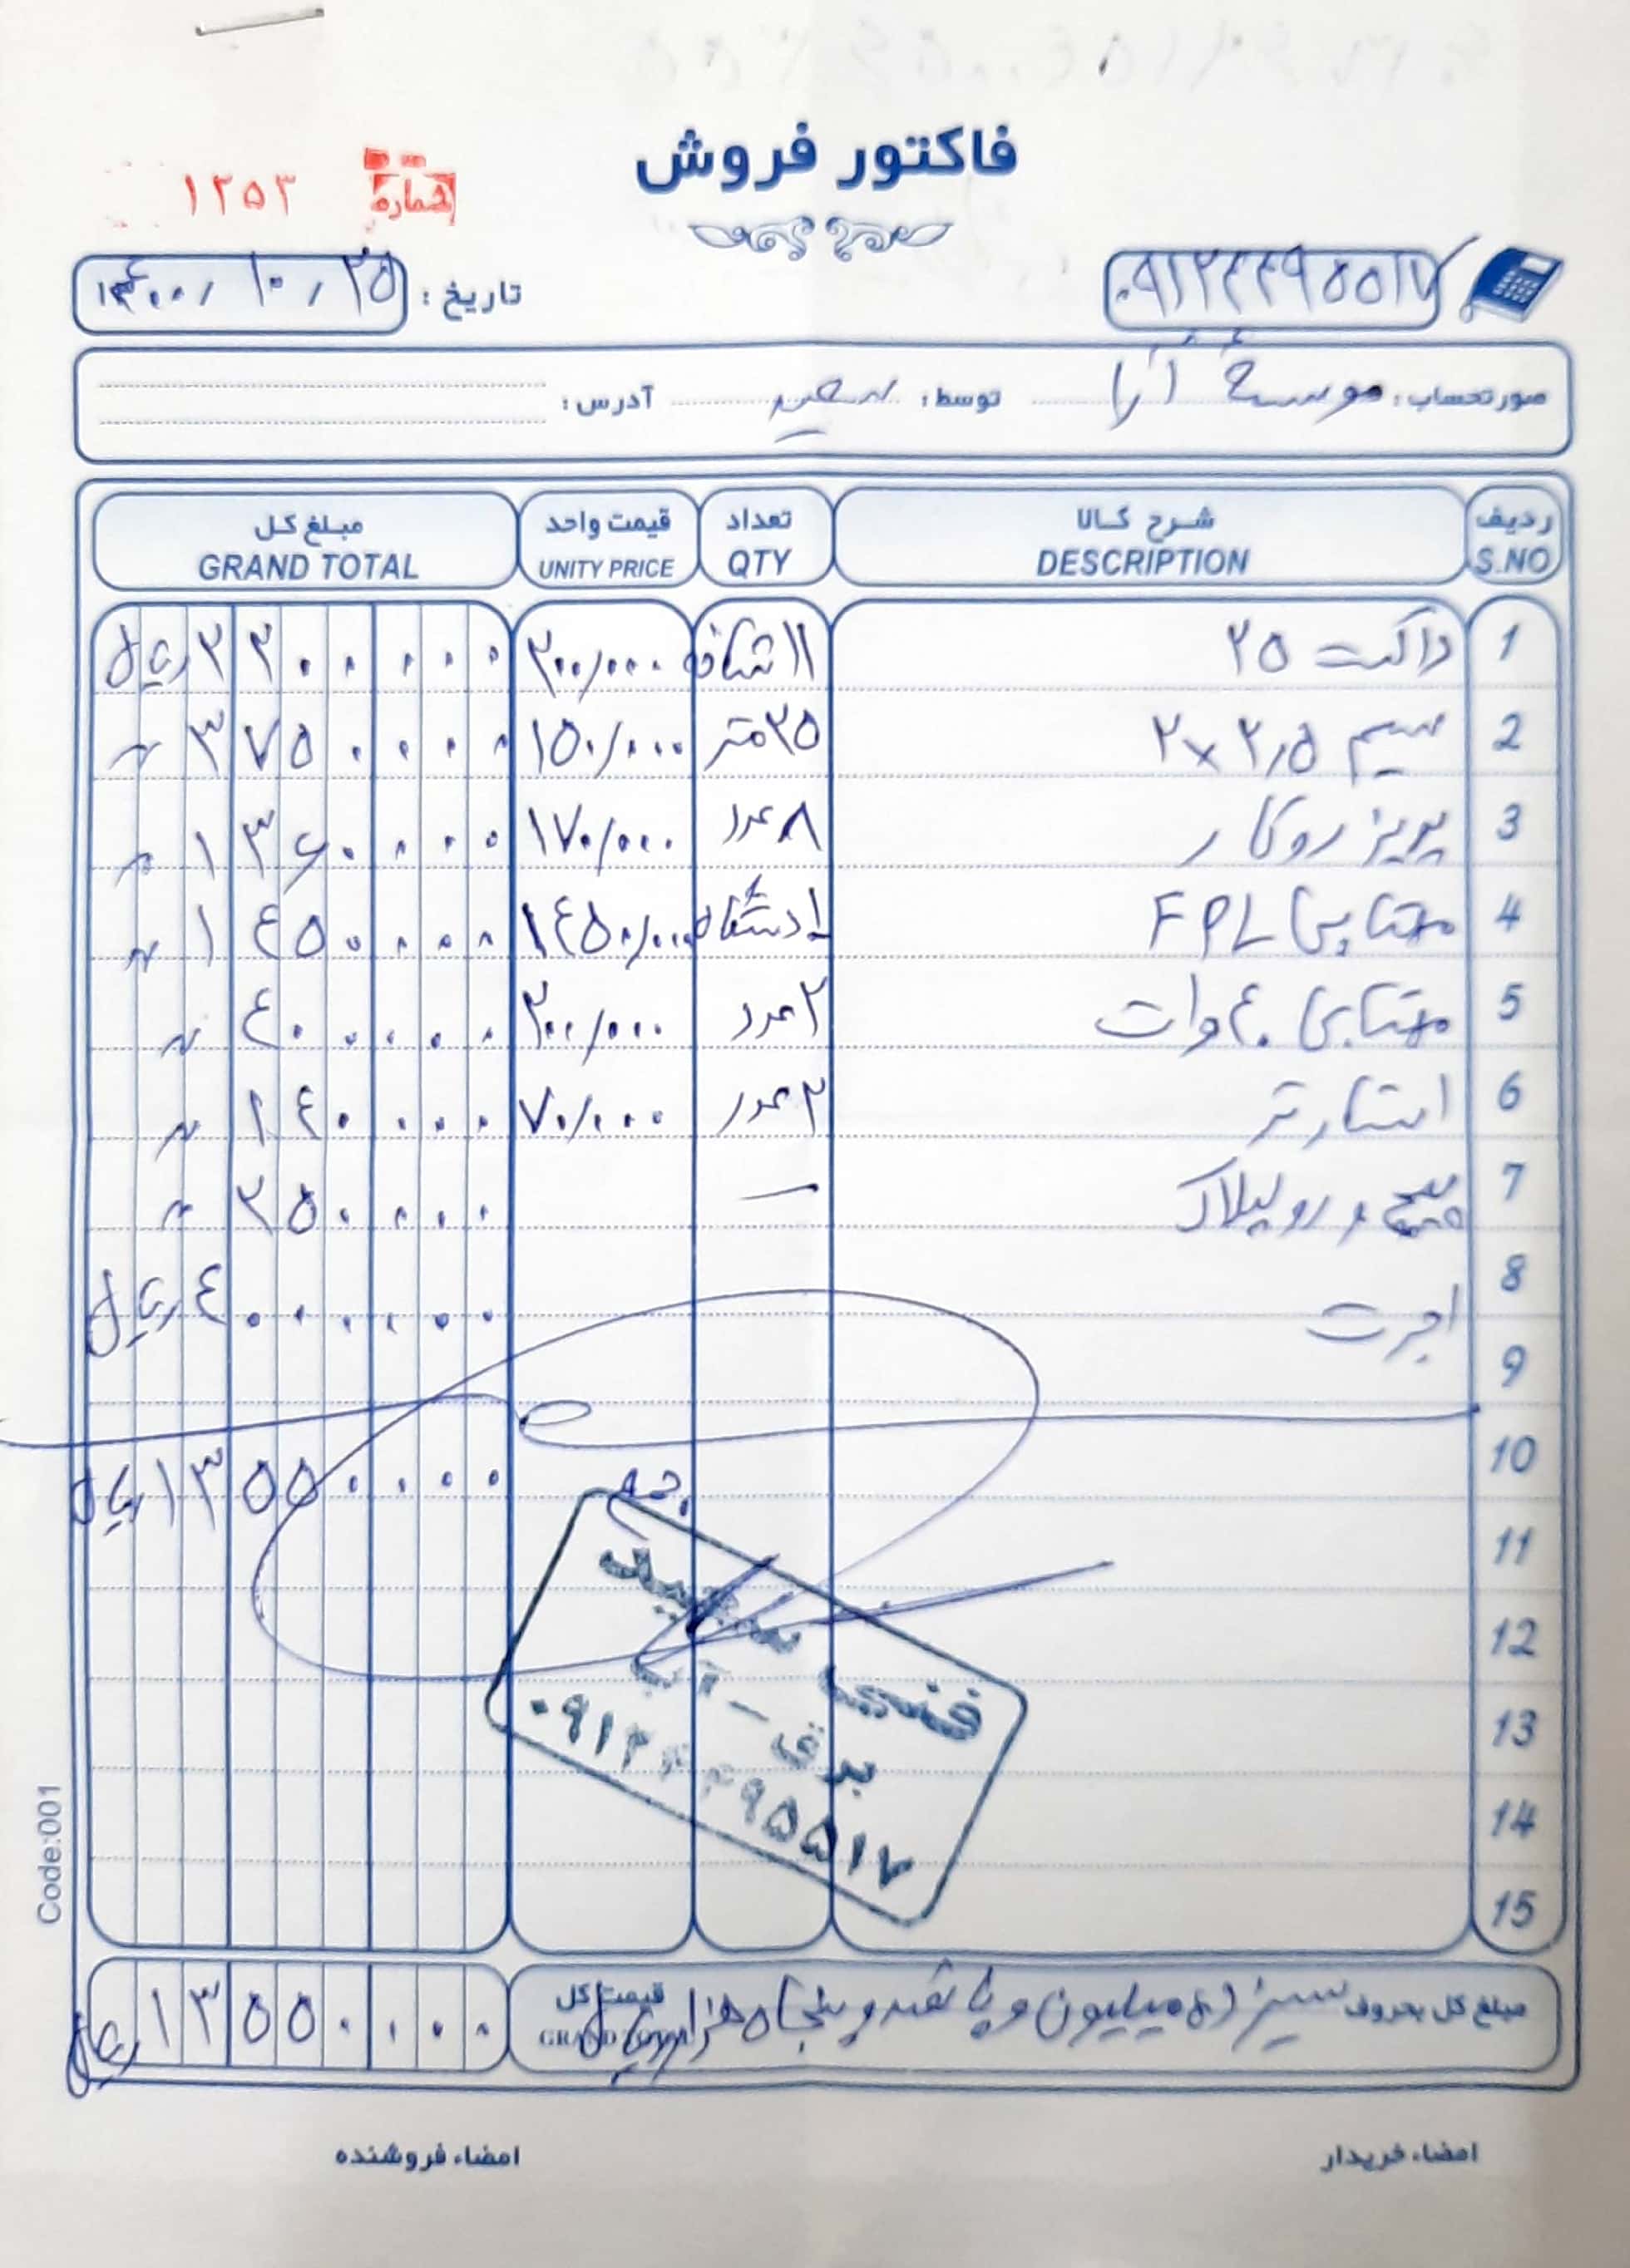 فاکتور فروش
شماره ۱۲۵۳
۰۹۱۲۴۴۹۵۵۱۷
تاریخ : ۱۴۰۰/۱۰/۲۵
صورتحساب: موسسهٔ آرا توسط: سعید آدرس:
ردیف شـرح کـالا تعداد قیمت واحد مبلغ کـل
S.NO DESCRIPTION QTY UNITY PRICE GRAND TOTAL
1 داکت ۲۵ ۱۱ شاخه ۲۰۰/۰۰۰ ۲۲۰۰۰۰۰ ریال
2 سیم ۲×۲٫۵ ۲۵ متر ۱۵۰/۰۰۰ ۳۷۵۰۰۰۰ "
3 پریز روکار ۸ عدد ۱۷۰/۰۰۰ ۱۳۶۰۰۰۰ "
4 مهتابی FPL ۱ دستگاه ۱۴۵۰/۰۰۰ ۱۴۵۰۰۰۰ "
5 مهتابی ۴۰ وات ۲ عدد ۲۰۰/۰۰۰ ۴۰۰۰۰۰ "
6 استارتر ۲ عدد ۷۰/۰۰۰ ۱۴۰۰۰۰ "
7 پیچ و رولپلاک — ۲۵۰۰۰۰ "
8 اجرت ۴۰۰۰۰۰۰ ریال
9
10 جمع ۱۳۵۵۰۰۰۰ ریال
11
12
13
14
15
فنی
برق – آب
۰۹۱۲۴۴۹۵۵۱۷
مبلغ کل بحروف سیزده میلیون و پانصد و پنجاه هزار ریال قیمت کل ۱۳۵۵۰۰۰۰ ریال
GRAND TOTAL
امضاء خریدار امضاء فروشنده
Code:001